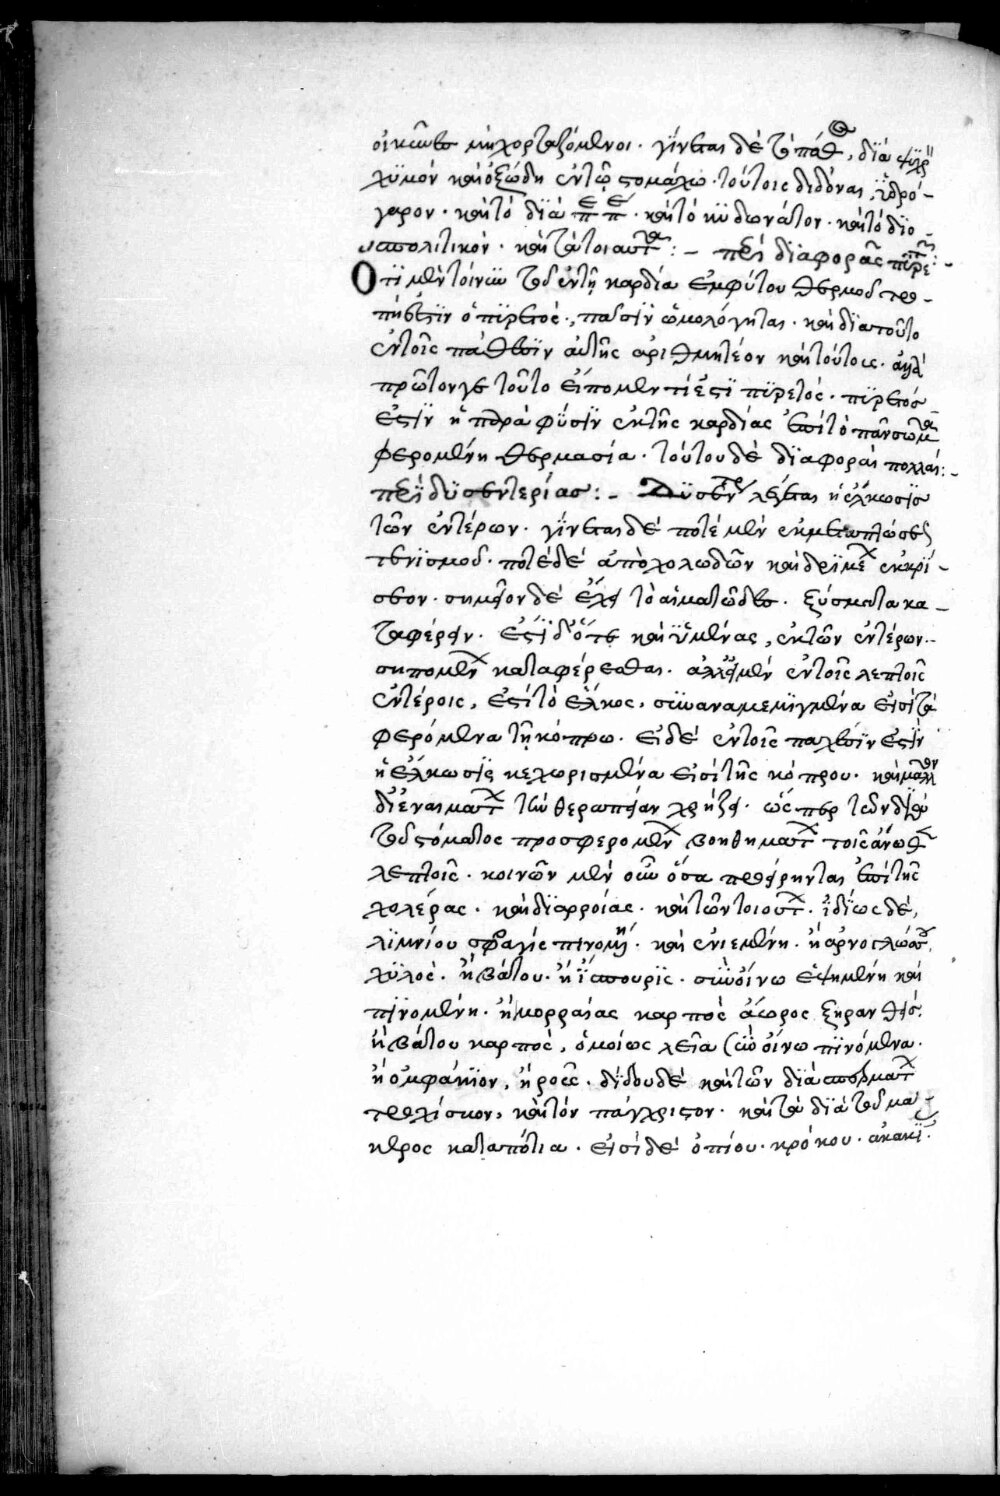 οἱ κῦνες μὴ χορταζόμενοι. γίνεται δὲ τὸ πάθος, διὰ ψυχρ
χυμὸν καὶ ὀξώδη ἐν τῷ στομάχω. τούτοις διδόναι, ὑδρό-
γαρον. καὶ τὸ διὰ πεπε. καὶ τὸ κυδωνάτον. καὶ τὸ διο-
σπολιτικόν. καὶ τὰ τοιαῦτα:- περὶ διαφορᾶς πυρε:-
Ὅτι μὲν τοίνυν τοῦ ἐν τῇ καρδία ἐμφύτου θερμοῦ
ἐστὶν ὁ πυρετὸς, πᾶσιν ὡμολόγηται. καὶ διατοῦτο
ἐν τοῖς πάθεσιν αὐτῆς ἀριθμητέον καὶ τούτοις. ἀλλὰ
πρῶτον γε τοῦτο εἴπομεν τί ἐστι πυρετός. πυρετός
ἐστὶν ἡ παρὰ φύσιν ἐκ τῆς καρδίας ἐπὶ τὸ πᾶν σῶμα
φερομένη θερμασία. τούτου δὲ διαφοραὶ πολλαί:-
περὶ δυσεντερίας:- Δυσεντερία λέγεται ἡ ἕλκωσις
τῶν ἐντέρων. γίνεται δὲ ποτὲ μὲν ἐκ μεταπτώσεως
τενισμοῦ. ποτὲ δὲ ἀπὸ χολωδῶν καὶ δριμέων ἐκκρί-
σεων. σημεῖον δὲ ἔχει τὸ αἱματῶδες. ξύσματα κα-
ταφέρειν. ἔστι δ' ὅτε καὶ ὑμένας, ἐκ τῶν ἐντέρων
σηπομένων καταφέρεσθαι. ἀλλ' εἰ μὲν ἐν τοῖς λεπτοῖς
ἐντέροις, ἐστὶ τὸ ἕλκος, συναναμεμιγμένα εἰσὶ τὰ
φερόμενα τῇ κόπρω. εἰ δὲ ἐν τοῖς παχέσιν ἐστὶν
ἡ ἕλκωσις κεχωρισμένα εἰσὶ τῆς κόπρου. καὶ μᾶλλον
δι' ἐναιμάτων τὴν θεραπείαν χρήζει. ὥσπερ τῶν διὰ
τοῦ στόματος προσφερομένων βοηθημάτων τοῖς ἄνωθεν
λεπτοῖς. κοινῶν μὲν οὖν ὅσα προείρηνται ἐπὶ τῆς
χολέρας. καὶ διαρροίας. καὶ τῶν τοιούτων. ἰδίως δὲ,
λιμνίου σφραγὶς πινομένη. καὶ ἐνιεμένη. ἢ ἀρνογλώσσ
χυλὸς. ἢ βάτου. ἢ ἵππουρις. σὺν οἴνω ἑψημένη καὶ
πινομένη. ἢ μορραίας καρπὸς ἄωρος ξηρανθείς.
ἢ βάτου καρπὸς, ὁμοίως λεῖα σὺν οἴνω πινόμενα.
ἢ ὀμφάκιον, ἢ ῥοῦς. δίδου δὲ καὶ τῶν διὰ σπερμάτων
τροχίσκον, καὶ τὸν πάγχριστον. καὶ τὰ διὰ τοῦ μα
κερος καταπότια. εἰσὶ δὲ ὀπίου. κρόκου. ἀκακί.